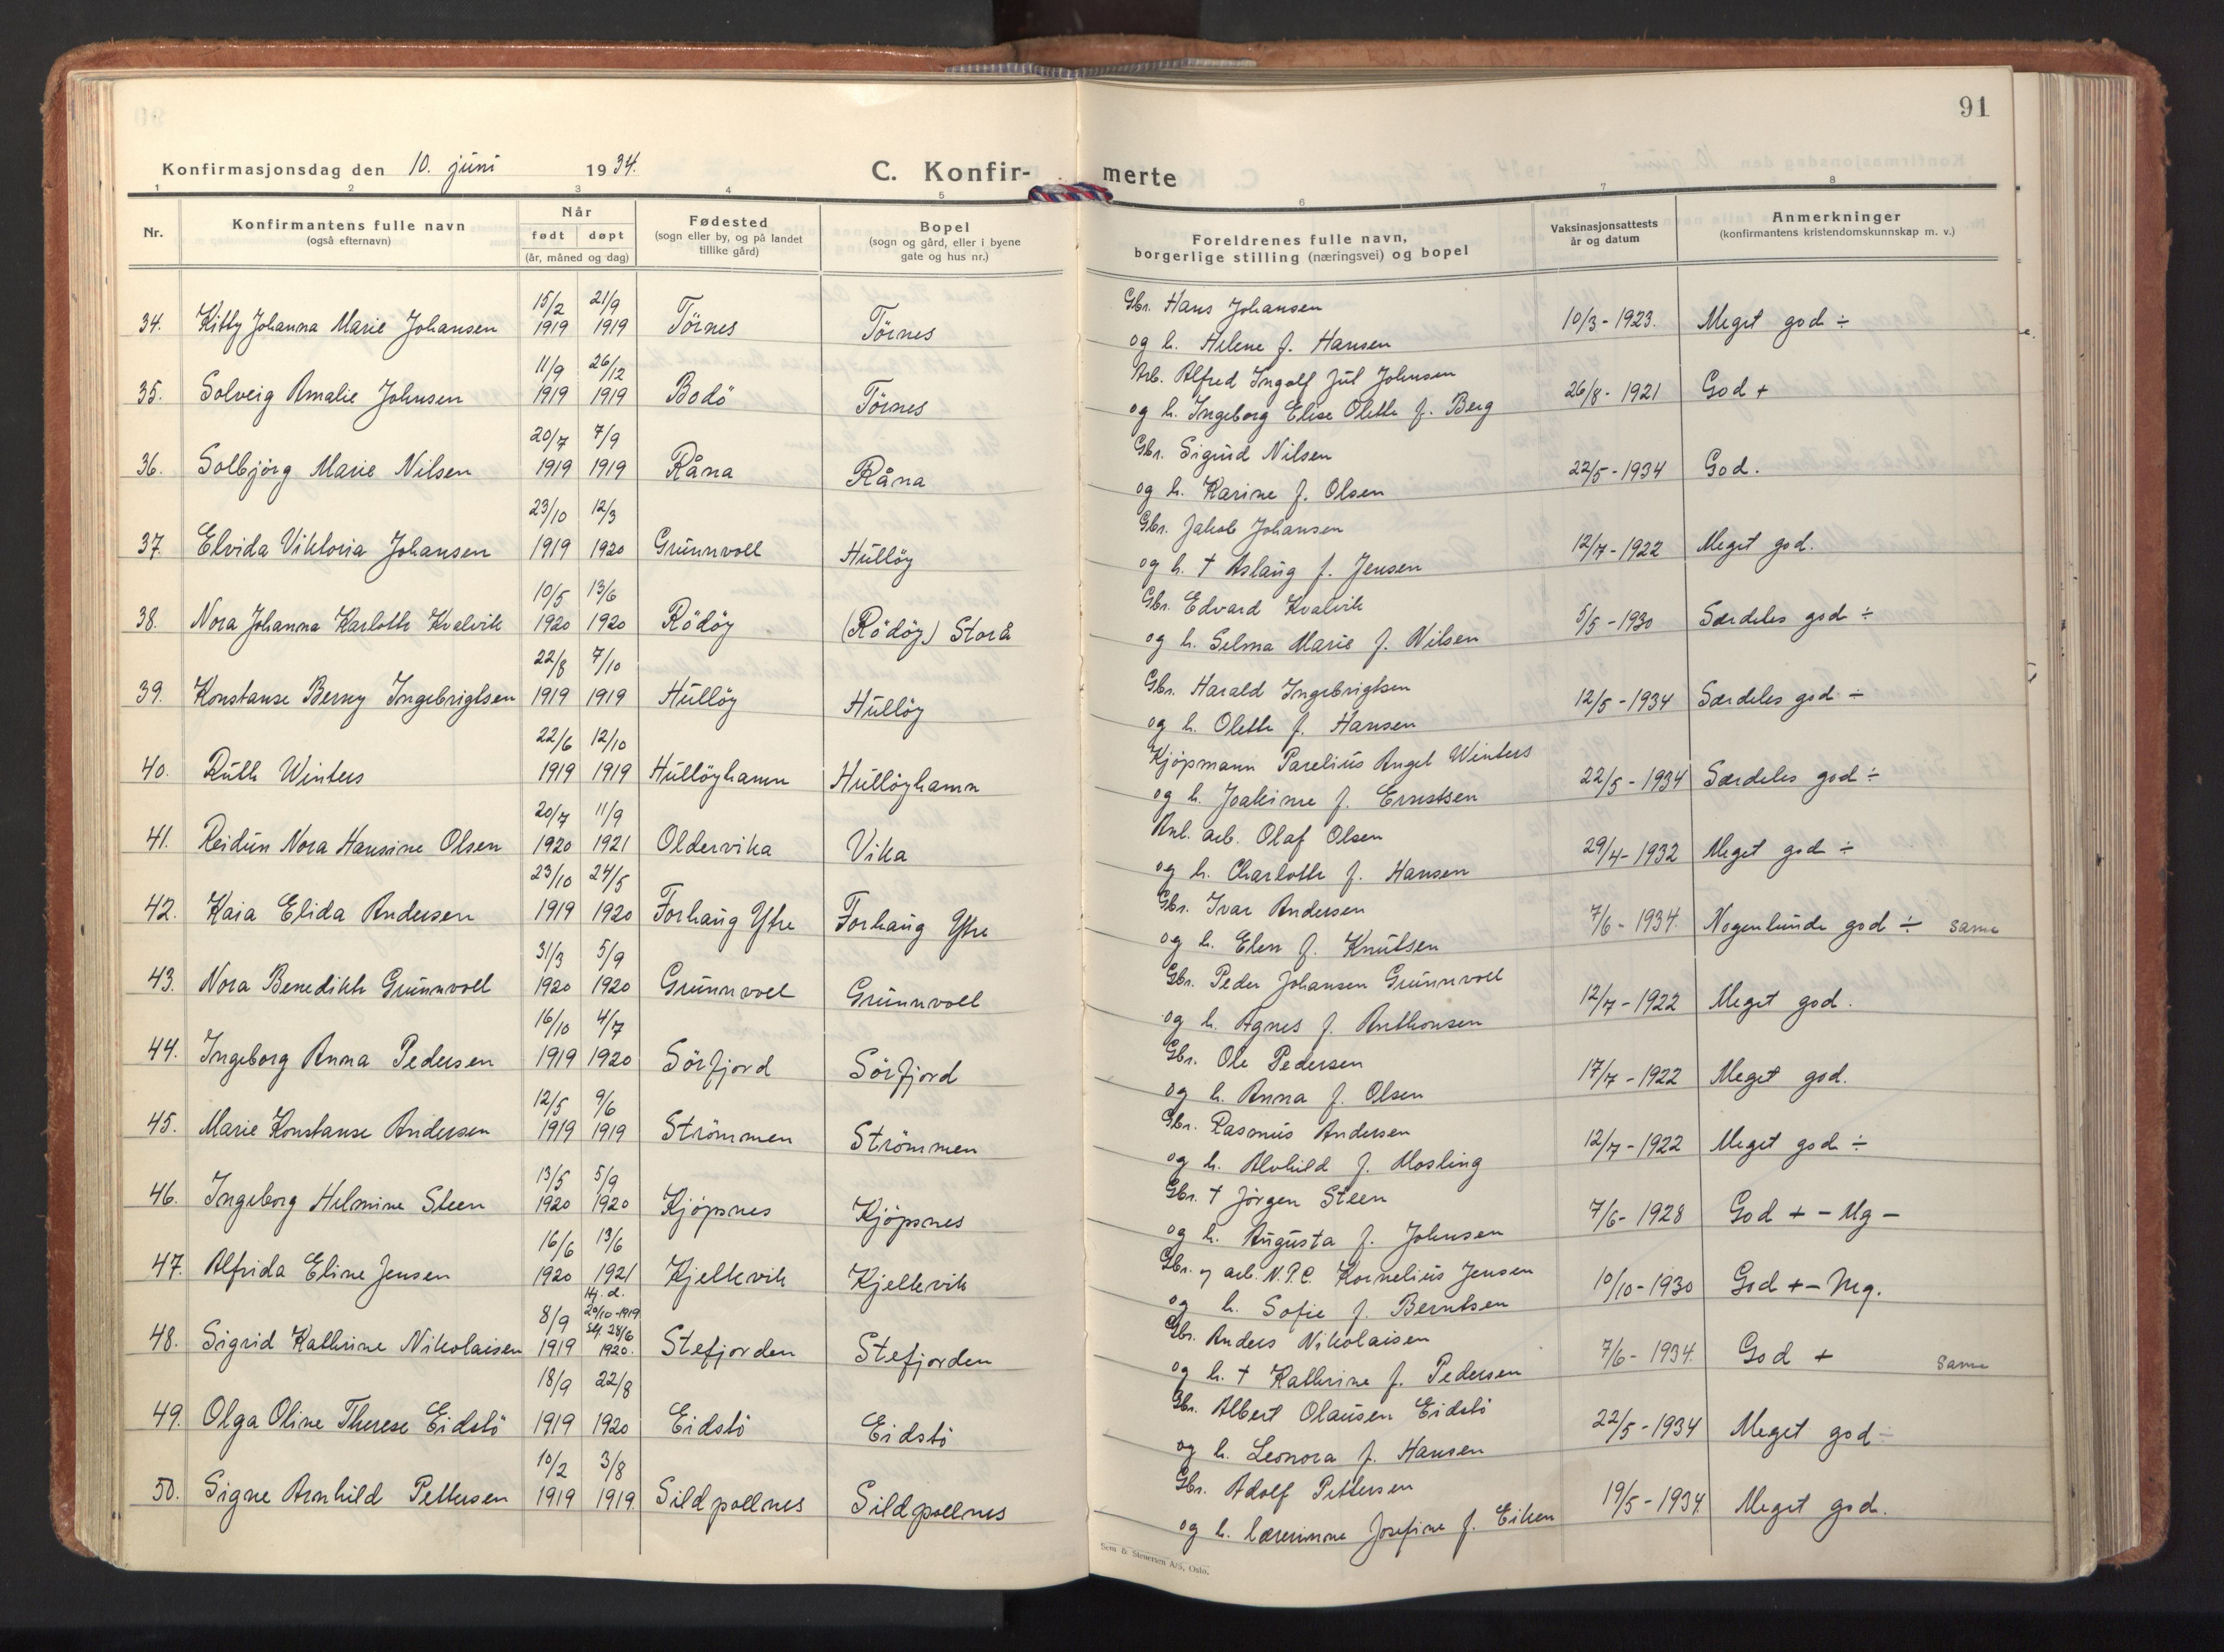 91
Konfirmasjonsdag den 10. juni 1934.
C. Konfir-
merte
1 2 3 4 5 6 7 8
Nr.
Konfirmantens fulle navn
(også efternavn)
Når
født døpt
(år, måned og dag)
Fødested
(sogn eller by, og på landet
tillike gård)
Bopel
(sogn og gård, eller i byene
gate og hus nr.)
Foreldrenes fulle navn,
borgerlige stilling (næringsvei) og bopel
Vaksinasjonsattests
år og datum
Anmerkninger
(konfirmantens kristendomskunnskap m. v.)
15/2 21/9 Gbr. Hans Johansen
34. Kitty Johanna Marie Johansen 1919 1919 Törnes Törnes og h. Helene f. Hansen 10/3-1923. Meget god ÷
11/9 26/12 Arb. Alfred Ingolf Jul Johnsen
35. Solveig Amalie Johnsen 1919 1919 Bodö Törnes og h. Ingeborg Elise Olette f. Berg 26/8-1921 God +
20/7 7/9 Gbr. Sigurd Nilsen
36. Solbjörg Marie Nilsen 1919 1919 Råna Råna og h. Karine f. Olsen 22/5-1934 God.
23/10 12/3 Gbr. Jakob Johansen
37. Elvida Viktoria Johansen 1919 1920 Grunnvoll Hulløy og h. † Aslaug f. Jensen 12/7-1922 Meget god.
10/5 13/6 Gbr. Edvard Kvalvik
38. Nora Johanna Karlotte Kvalvik 1920 1920 Rödöy (Rödöy) Storå og h. Selma Marie f. Nilsen 5/5-1930 Særdeles god ÷
22/8 7/10 Gbr. Harald Ingebrigtsen
39. Konstanse Berny Ingebrigtsen 1919 1919 Hullöy Hullöy og h. Olette f. Hansen 12/5-1934 Særdeles god ÷
22/6 12/10 Kjöpmann Parelius Angel Winters
40. Ruth Winters 1919 1919 Hullöyhamn Hullöyhamn og h. Joakime f. Ernstsen 22/5-1934 Særdeles god ÷
20/7 11/9 Anl. arb. Olaf Olsen
41. Reidun Nora Hansine Olsen 1920 1921 Oldervika Vika og h. Charlotte f. Hansen 29/4-1932 Meget god ÷
23/10 24/5 Gbr. Ivar Andersen
42. Kaia Elida Andersen 1919 1920 Forhaug Ytre Forhaug Ytre og h. Elen f. Knutsen 7/6-1934. Nogenlunde god ÷ same
31/3 5/9 Gbr. Peder Johansen Grunnvoll
43. Nora Benedikte Grunnvoll 1920 1920 Grunnvoll Grunnvoll og h. Agnes f. Anthonsen 12/7-1922 Meget god.
16/10 4/7 Gbr. Ole Pedersen
44. Ingeborg Anna Pedersen 1919 1920 Sörfjord Sörfjord og h. Anna f. Olsen 17/7-1922 Meget god.
12/5 9/6 Gbr. Rasmus Andersen
45. Marie Konstanse Andersen 1919 1919 Strömmen Strömmen og h. Alvhild f. Mosling 12/7-1922 Meget god ÷
13/5 5/9 Gbr. † Jörgen Steen
46. Ingeborg Helmine Steen 1920 1920 Kjöpsnes Kjöpsnes og h. Augusta f. Johnsen 7/6-1928 God + - Mg -
16/6 13/6 Gbr. og arb. N.P.C. Kornelius Jensen
47. Alfrida Eline Jensen 1920 1921 Kjellevik Kjellevik og h. Sofie f. Berntsen 10/10-1930 God + - Mg.
8/9 Hj. d. 20/10-1919 Gbr. Anders Nikolaisen
48. Sigrid Kathrine Nikolaisen 1919 28/6 1920. Stefjorden Stefjorden og h. † Kathrine f. Pedersen 7/6-1934. God + same
18/9 22/8 Gbr. Albert Olausen Eidstö
49. Olga Oline Therese Eidstö 1919 1920 Eidstö Eidstö og h. Leonora f. Hansen 22/5-1934 Meget god ÷
10/2 3/8 Gbr. Adolf Pettersen
50. Signe Arnhild Pettersen 1919 1919. Sildpollnes Sildpollnes og h. lærerinne Josefine f. Eiken 19/5-1934. Meget god.
Sem & Stenersen A/S, Oslo.